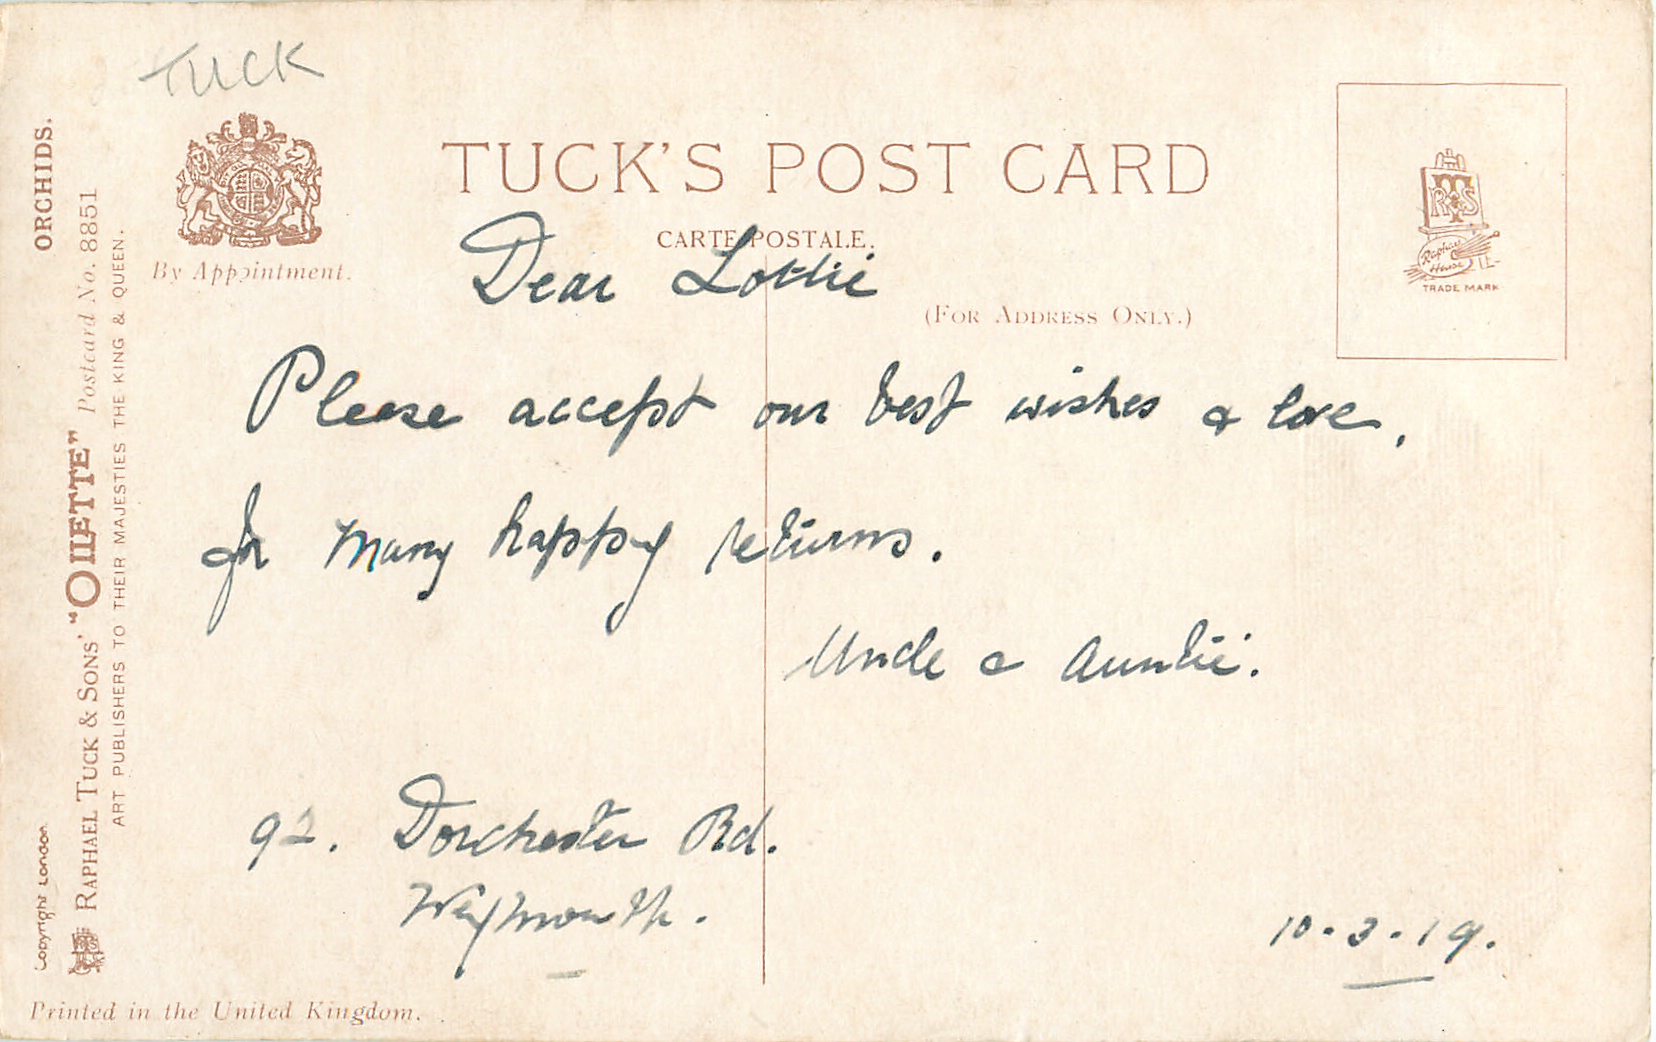 TUCK
TUCK'S POST CARD
CARTE POSTALE.
By Appointment.
(FOR ADDRESS ONLY.)
RTS
Raphael
House
TRADE MARK
ORCHIDS.
RAPHAEL TUCK & SONS' "OILETTE" Postcard No. 8851
ART PUBLISHERS TO THEIR MAJESTIES THE KING & QUEEN.
Copyright London
Dear Lottie
Please accept our best wishes & love,
for many happy returns.
Uncle & Auntie.
92. Dorchester Rd.
Weymouth.
10.3.19.
Printed in the United Kingdom.